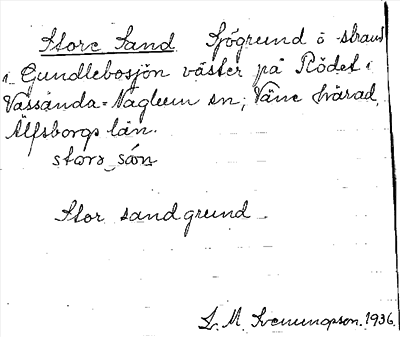 Store Sand Sjögrund o strand
i Gundlebosjön väster på Rödet i
Vassända-Naglum sn; Väne härad
Älfsborgs län.
storə sán
Stor sandgrund
L. M. Svenungsson. 1936.